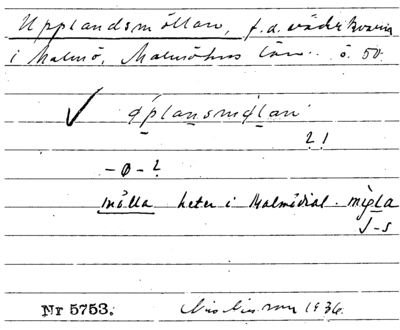 Upplandsmöllan, f.d. väderkvarn
i Malmö, Malmöhus län. ö. 50.
✓ óplansmølan
2 1
-ø-2
mölla heter i Malmödial. mø̀la
J-s
Nr 5753. 1936.